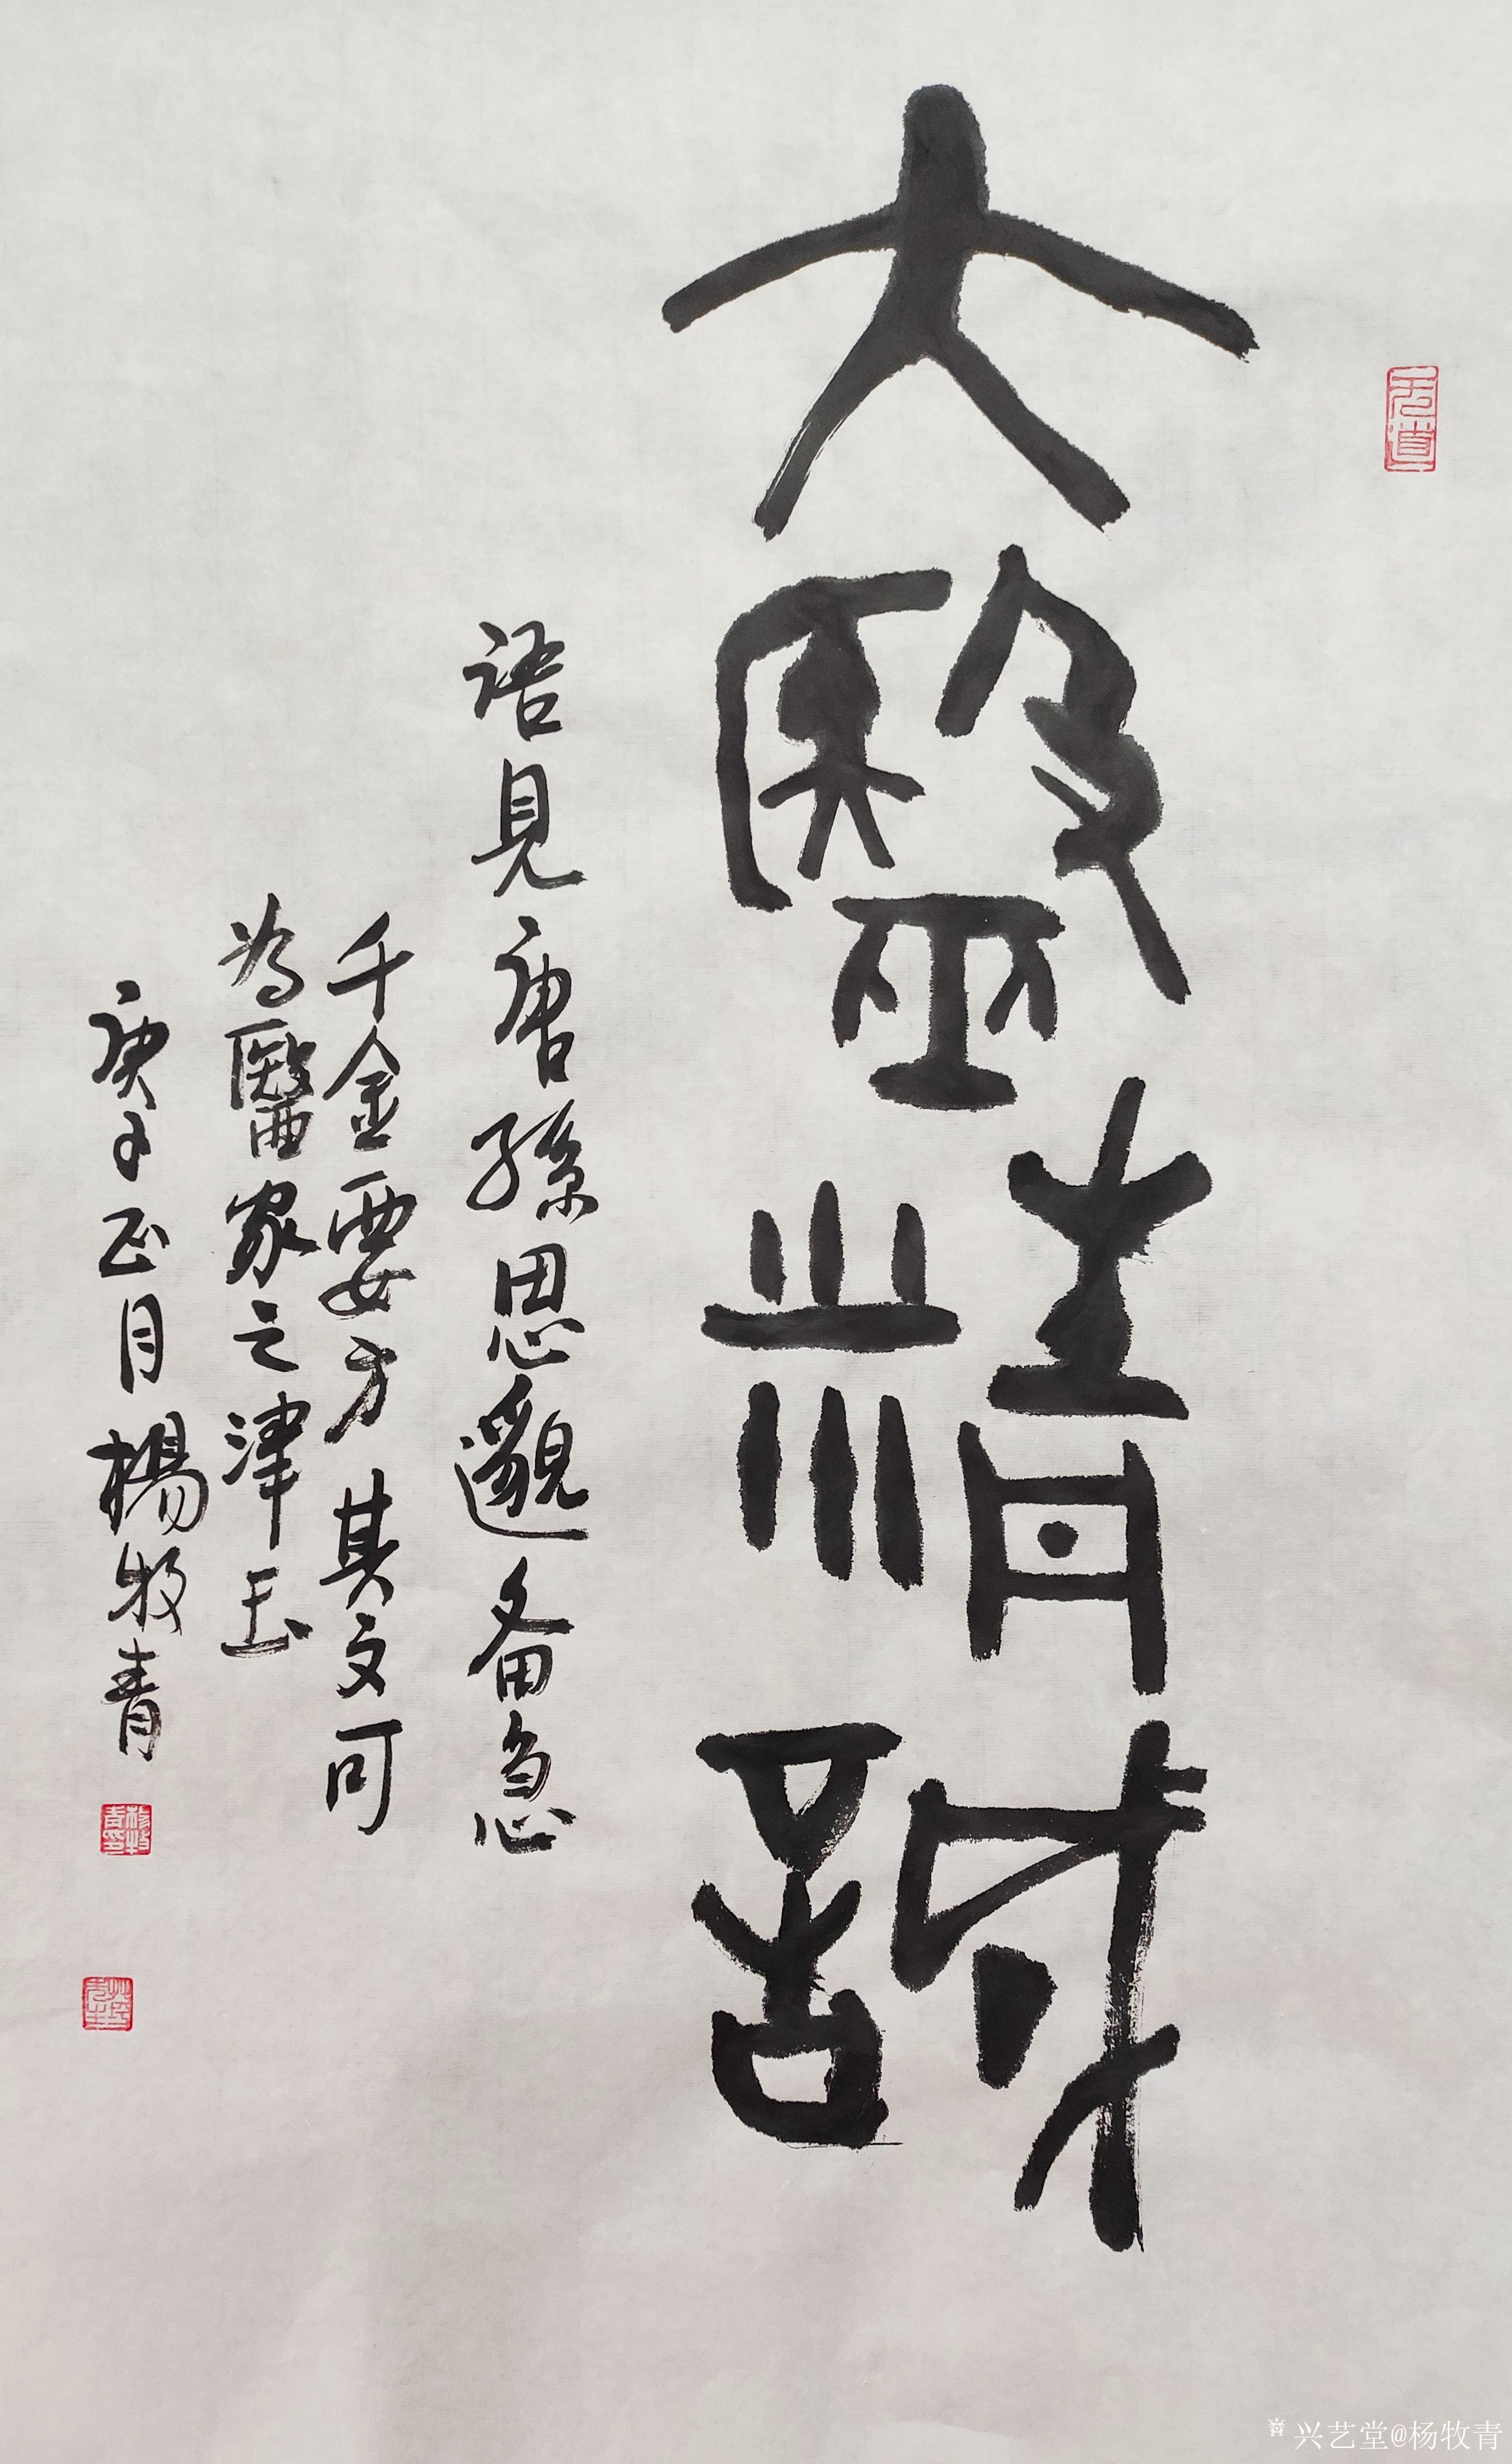 大醫精誠
語見唐孫思邈备急
千金要方其文可
为醫家之津玉
庚子正月楊牧青
兴艺堂@杨牧青